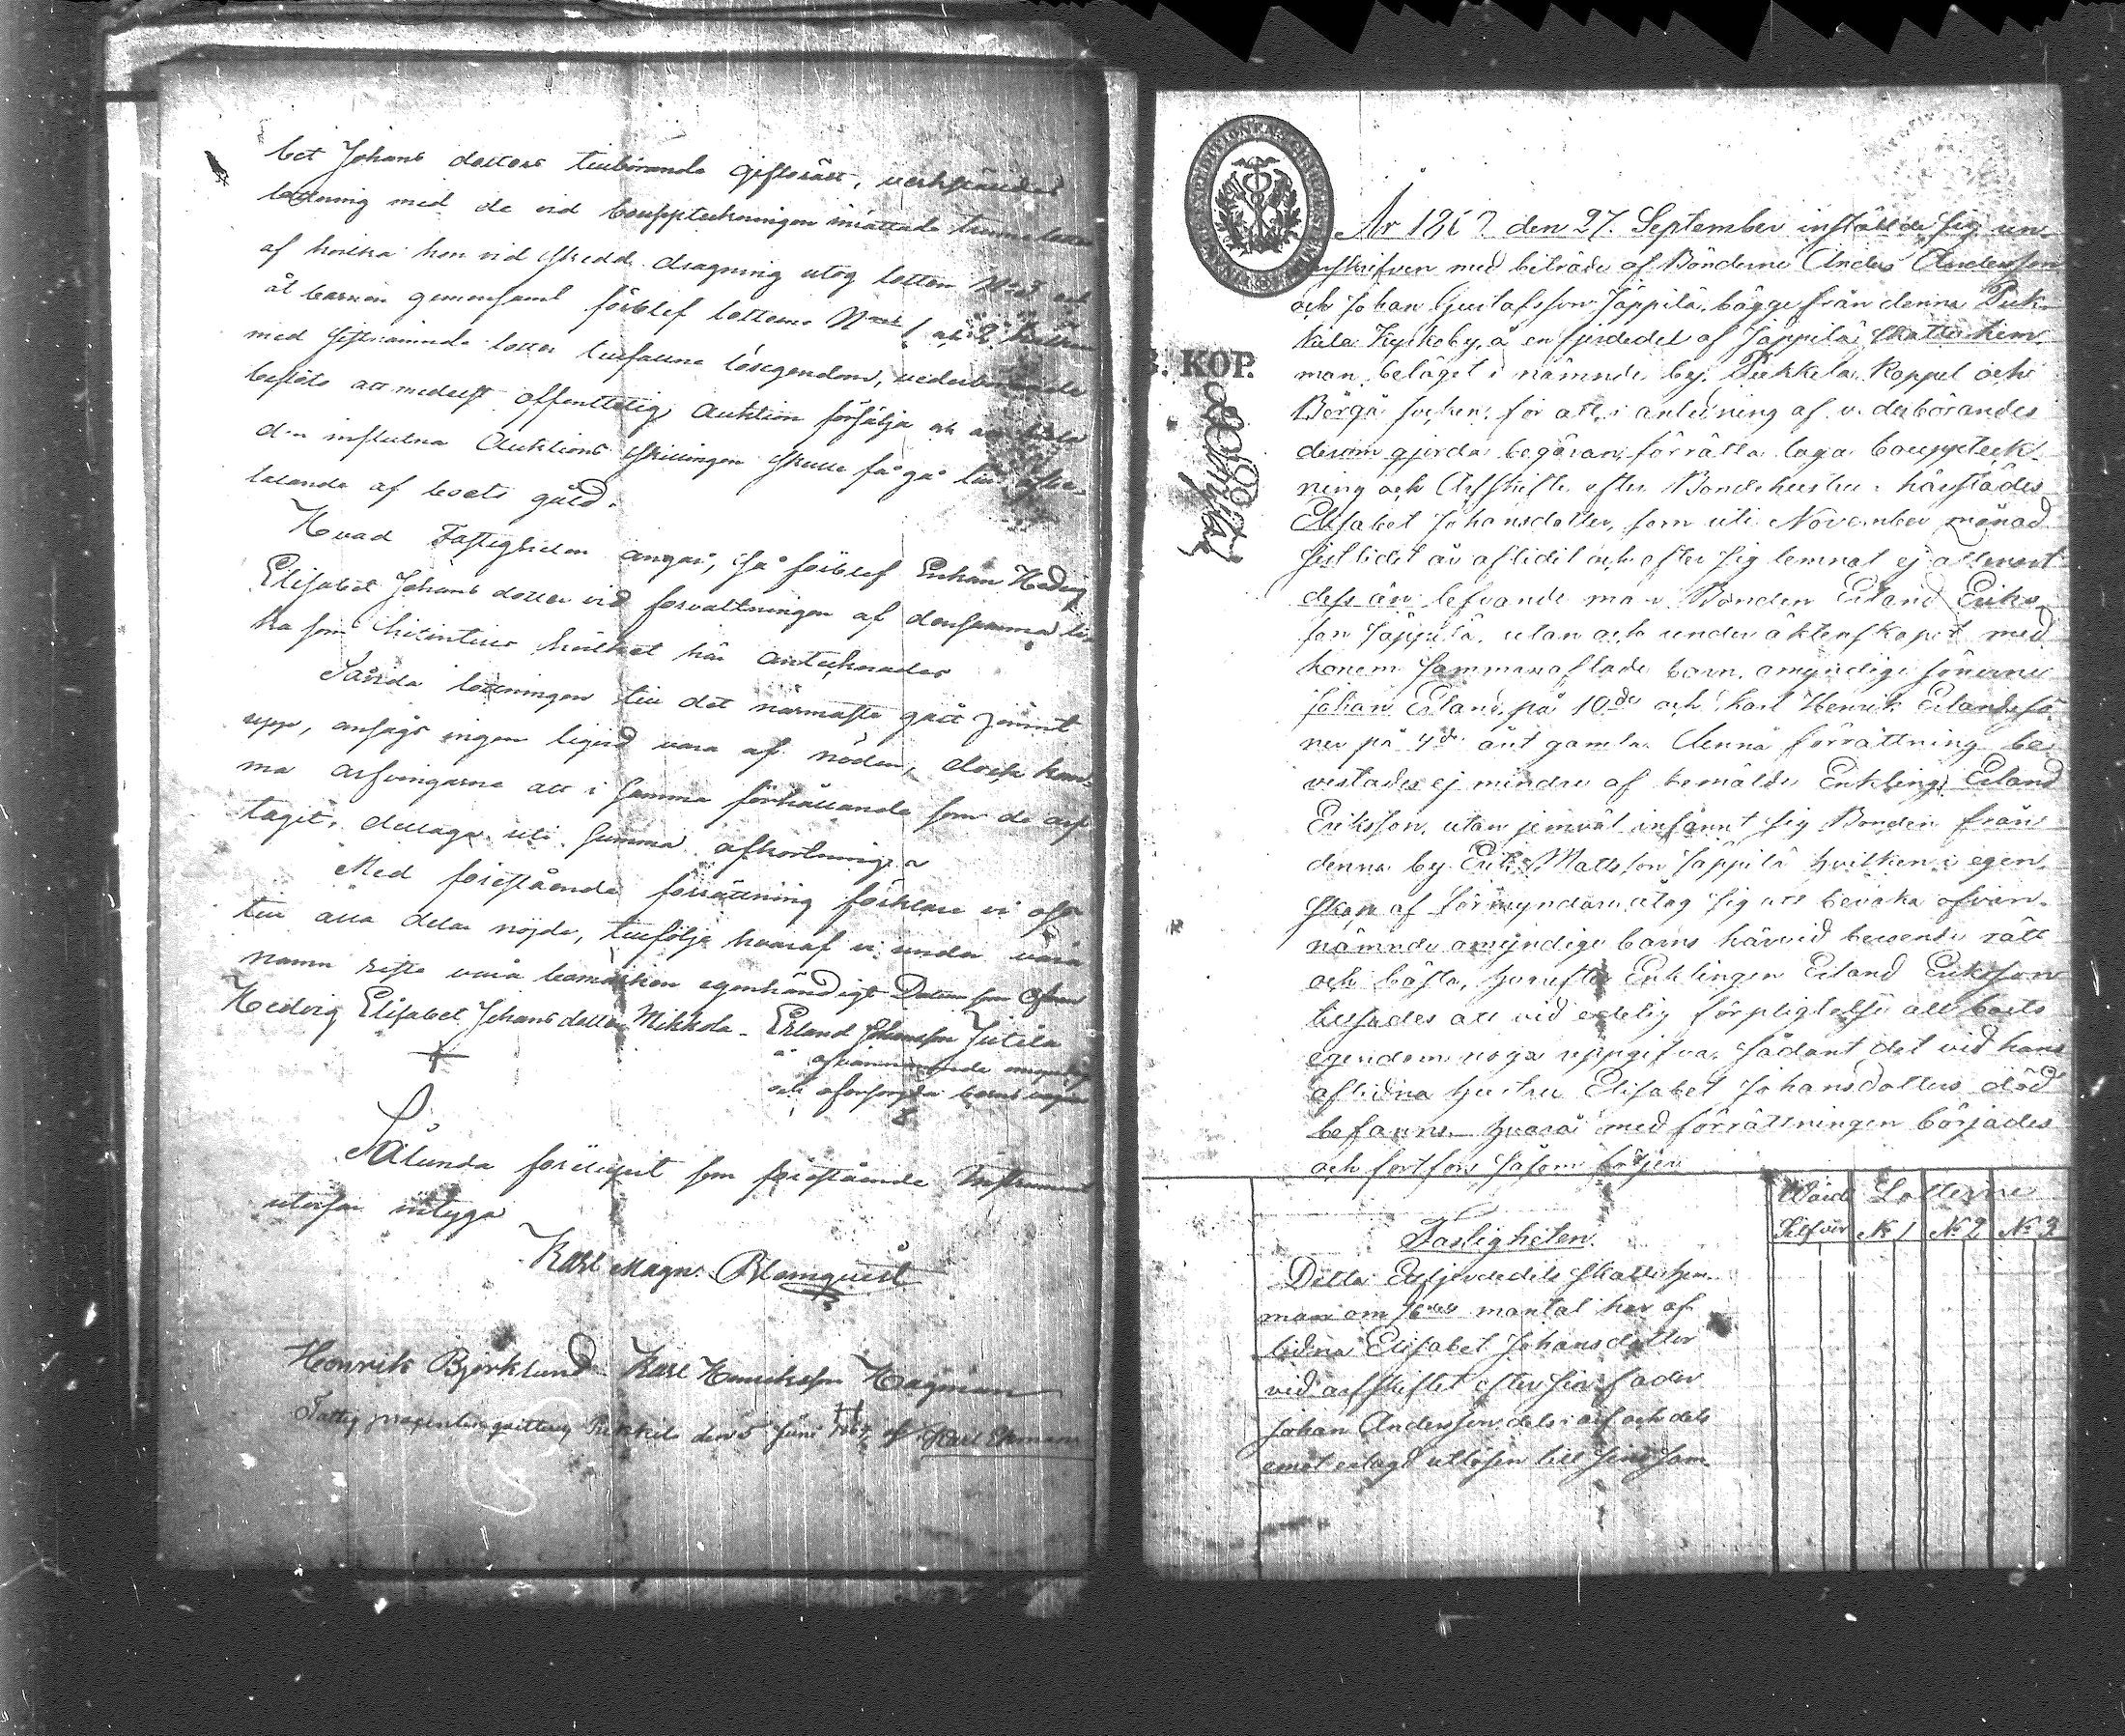 bet Johans dotters tillhörande giftorätt, verkställdes
lottning med de vid bouppteckningen inrättade trenne lotter
af hvilka hon vid skedd dragning utog lotten N:o 3 och
åt barnen gemensamt förblef lotterne N:o 1 och 2
med sistnämnde lotter tillfallne lösegendom, vederbörande
beslöts att medelst offentlig Auktion försälja och
den influtna Auktions skillingen skulle få gå till
betalande af boets gäld.
Hvad Fastigheten angår, så förblef Enkan Hedvig
Elisabet Johans dotter vid förvaltningen af densamma
hvilket här antecknades
Sålunda lottningen till det närmaste gått jämnt
upp, ansågs ingen liqvid vara af nöden, dock
ma arfvingarne att i samma förhållande som de arf
tagit, deltaga uti samma afkortningar
Med förestående förrättning förklare vi oss
till alla delar nöjde, tillfölje hvaraf vi under våra
namn rista våra bomärken egenhändigt Datum som ofvan
Hedvig Elisabet Johans dotter Mikkola - Erland Johansson
å ofvannämnde omyndige
och oförsörgda barns vägnar
Sålunda föreluppit som förestående Instrument
utvisar intyga
Karl Magn. Blomquist
Henrik Björklund Karl Henriksson Hagman
den 5 Juni af Karl Ekman
S. KOP.
År 186 den 27. September instälde sig un-
derskrifven med biträde af Bönderne Anders Andersson
och Johan Gustafsson Jäppilä, bägge från denna Puk-
kila Kyrkoby, å en fjerdedel af Jäppilä Skatte hem-
man, beläget i nämnde by, Pukkela Kappel och
Borgå socken, för att, i anledning af vederbörandes
derom gjorda begäran, förrätta laga bouppteck-
ning och Arfskifte efter Bondehustru härstädes
Elisabet Johansdotter, som uti November månad
sistlidet år aflidit och efter sig lemnat ej allenast
dess än lefvande man Bonden Erland Eriks-
son Jäppilä, utan och under äktenskapet med
honom sammanaflade barn, omyndige sönerne
Johan Erland på 10de och Karl Henrik Erlandssö-
ner på 7de året gamla. Denna förrättning be-
vistades ej mindre af bemälde Enkling Erland
Eriksson, utan jemväl infannt sig Bonden från
denna by Erik Mattsson Jäppilä hvilken i egen-
skap af Förmyndare åtog sig att bevaka ofvan-
nämnde omyndige barns härvid beroende rätt
och bästa, hvarefter Enklingen Erland Eriksson
tillsades att vid edelig förpligtelse all boets
egendom noga uppgifva, sådant det vid hans
aflidna hustru Elisabet Johansdotters död
befanns. Hvarå med förrättningen börjades
och fortfors såsom följer
Värde Lotterne
Silfver N:o 1 N:o 2 N:o 3
Fastigheten.
Detta Enfjerdedels Skattehem-
man om mantal har af-
lidna Elisabet Johansdotter
vid arfskiftet efter sin fader
Johan Andersson dels i arf och dels
emot erlagd utlösen till sina sam-